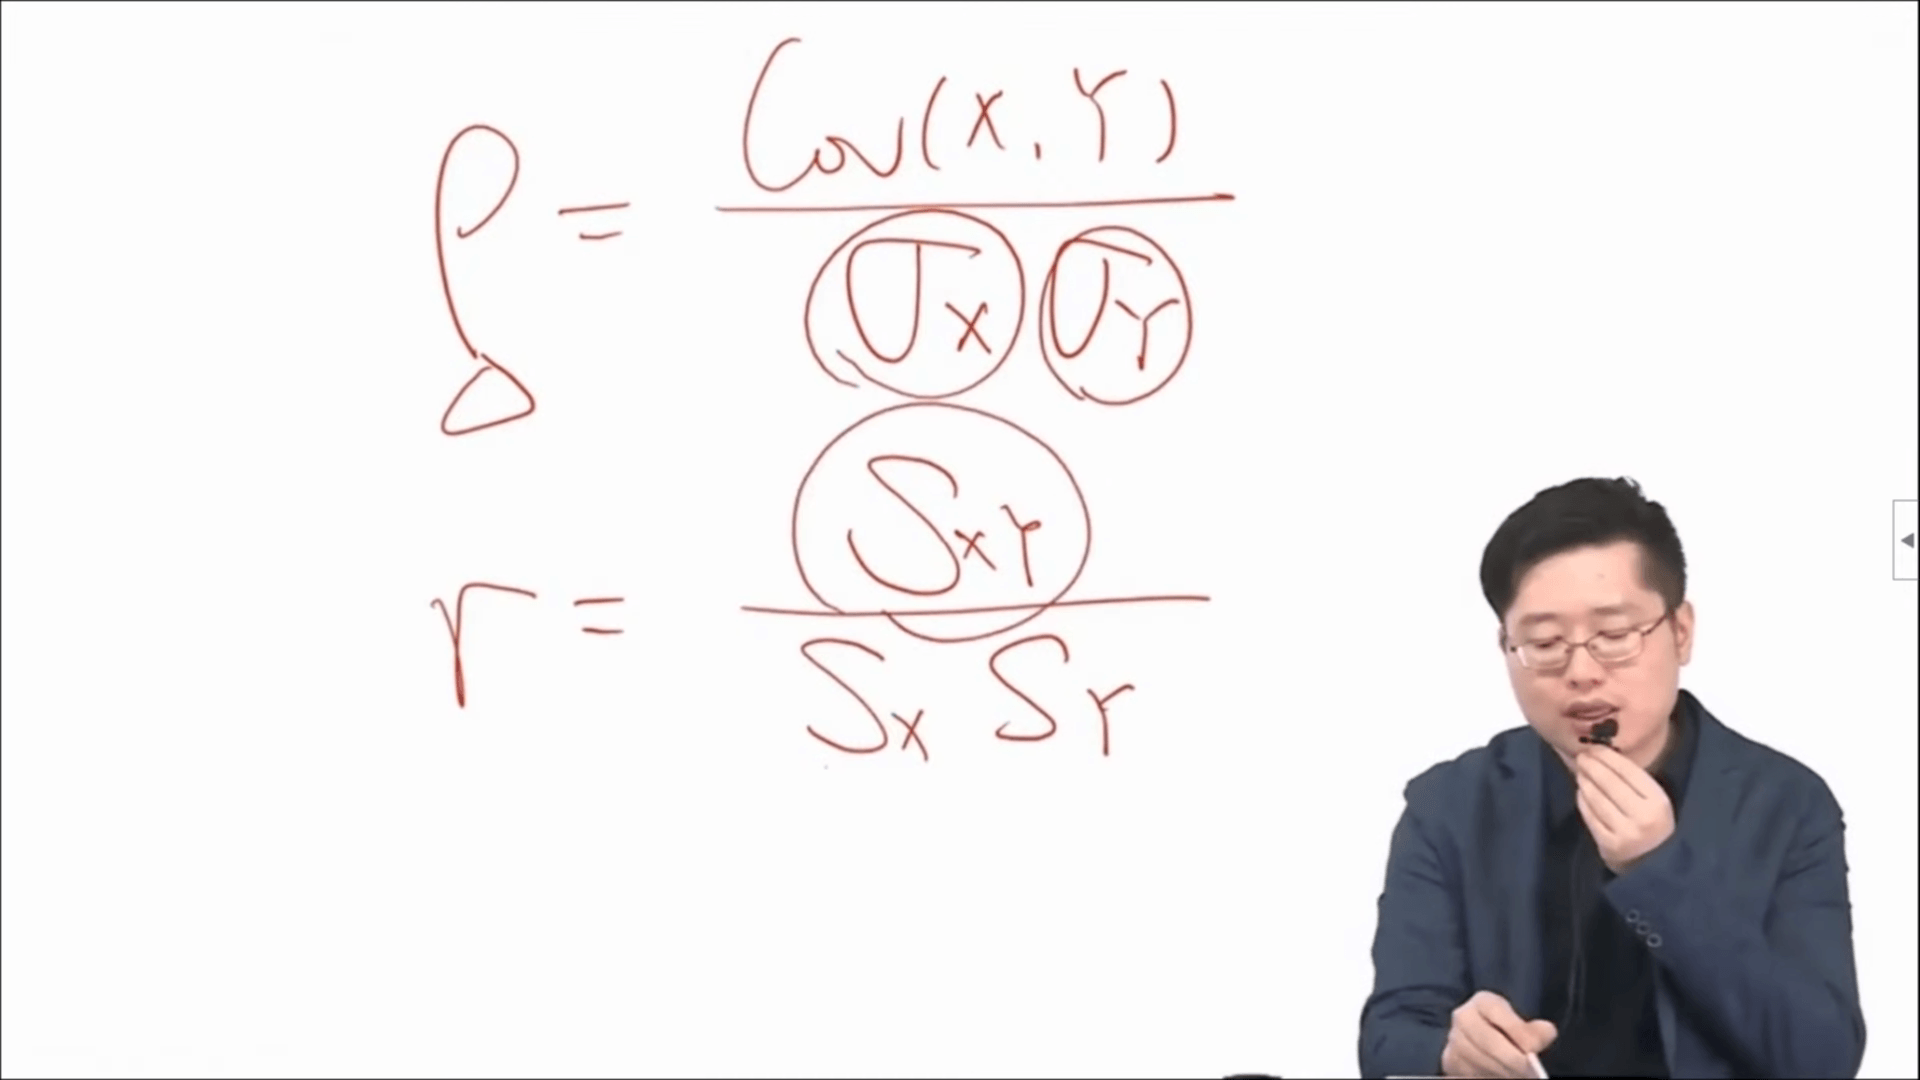 ρ = Cov(X, Y) / σX σY
r = SXY / SX SY